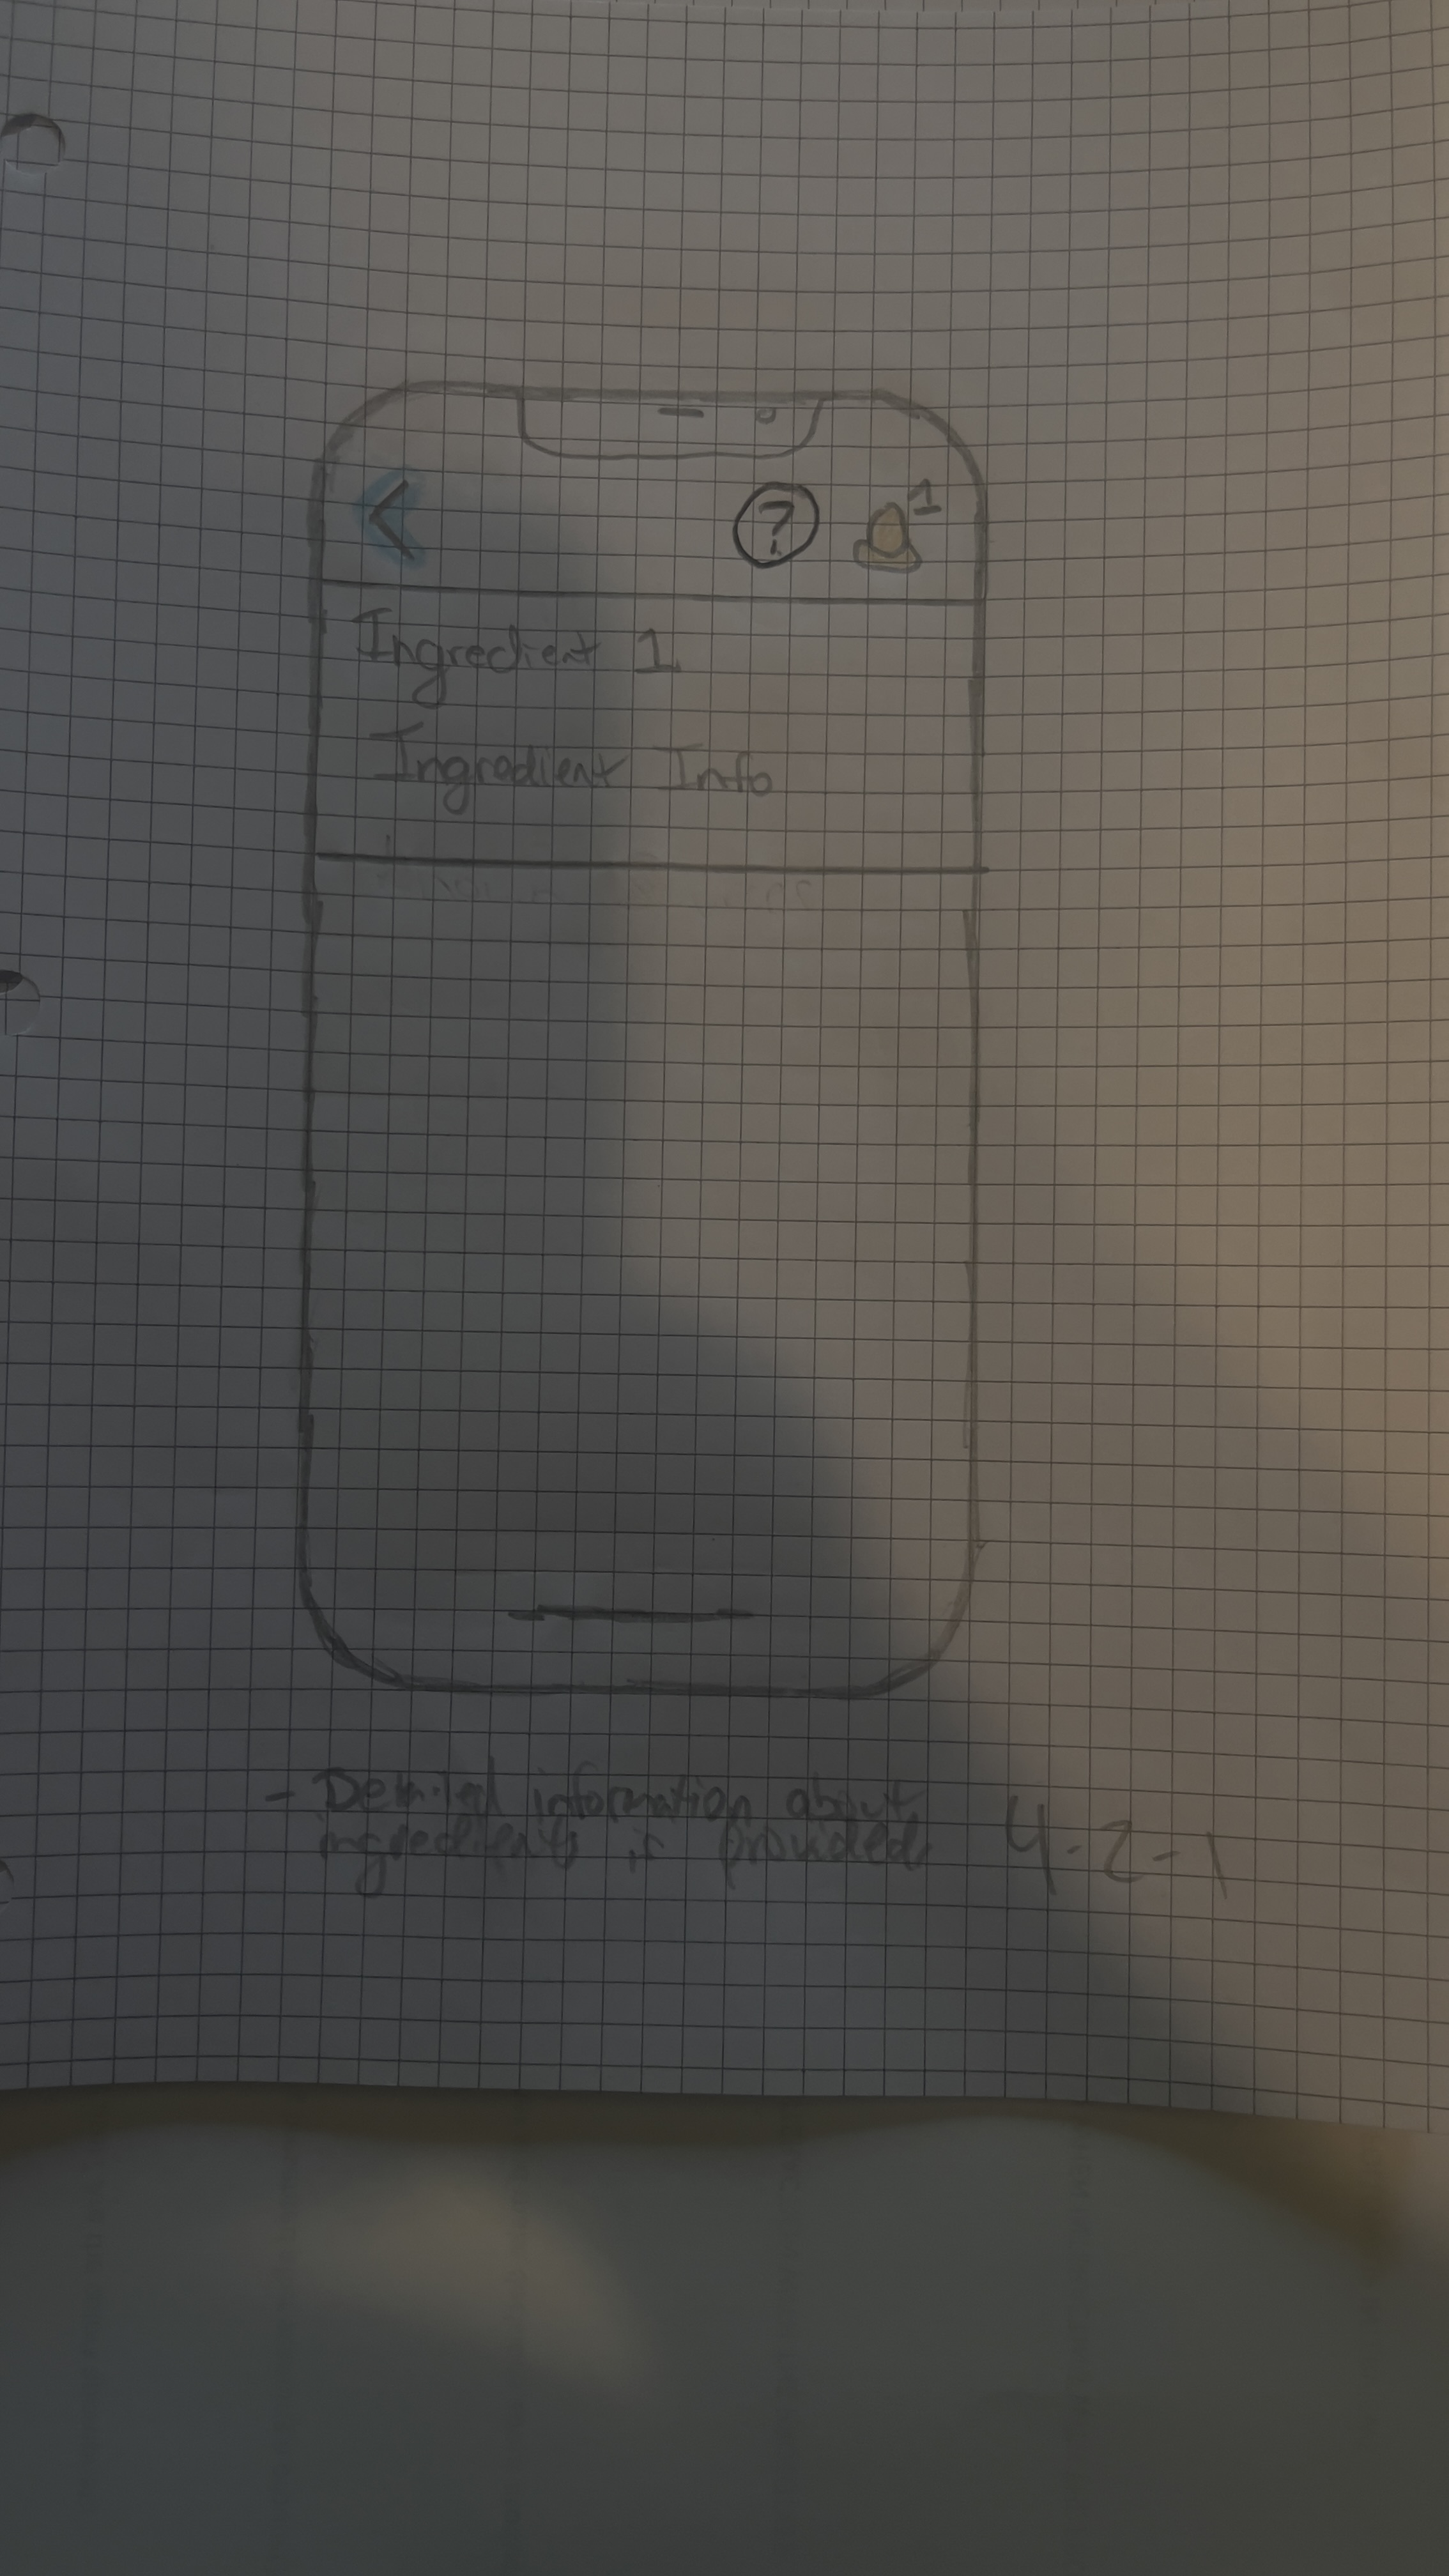 <
?
1
Ingredient 1
Ingredient Info
- Detailed information about
ingredients is provided
4-2-1